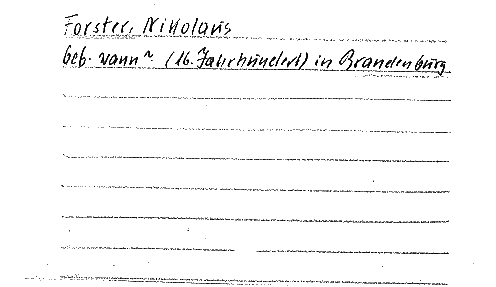 Forster, Nikolaus
geb. wann? (16. Jahrhundert) in Brandenburg